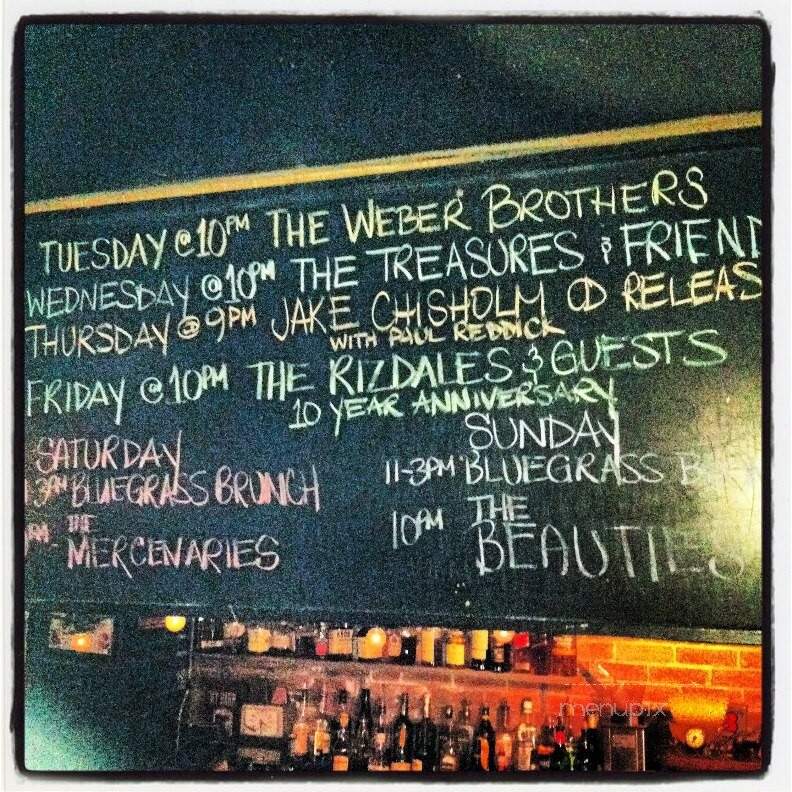 TUESDAY @ 10PM THE WEBER BROTHERS
WEDNESDAY @ 10PM THE TREASURES & FRIEND
THURSDAY @ 9PM JAKE CHISHOLM CD RELEAS
WITH PAUL REDDICK
FRIDAY @ 10PM THE RIZDALES & GUESTS
10 YEAR ANNIVERSARY
SATURDAY
3PM BLUEGRASS BRUNCH
THE
MERCENARIES
SUNDAY
11-3PM BLUEGRASS
10PM THE
BEAUTIES
menupix